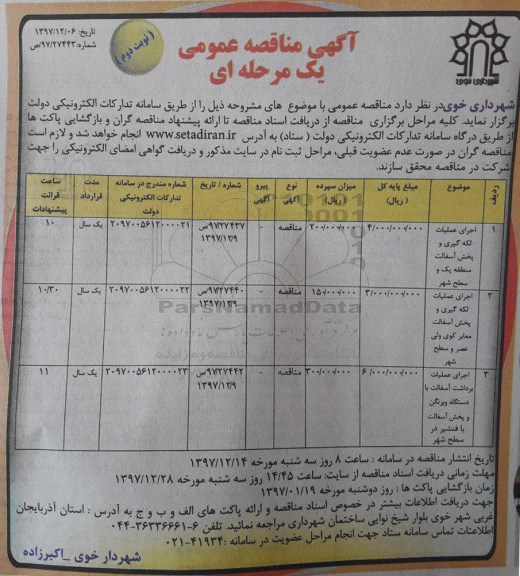 تاریخ: ۱۳۹۷/۱۲/۰۶
شماره: ۹۷/۲۷۴۴۳/ص
(نوبت دوم)
آگهی مناقصه عمومی
یک مرحله ای
شهرداری خوی
شهرداری خوی در نظر دارد مناقصه عمومی با موضوع های مشروحه ذیل را از طریق سامانه تدارکات الکترونیکی دولت
برگزار نماید. کلیه مراحل برگزاری مناقصه از دریافت اسناد مناقصه تا ارائه پیشنهاد مناقصه گران و بازگشایی پاکت ها
از طریق درگاه سامانه تدارکات الکترونیکی دولت ( ستاد) به آدرس www.setadiran.ir انجام خواهد شد و لازم است
مناقصه گران در صورت عدم عضویت قبلی، مراحل ثبت نام در سایت مذکور و دریافت گواهی امضای الکترونیکی را جهت
شرکت در مناقصه محقق سازند.
ردیف موضوع مبلغ پایه کل (ریال) میزان سپرده (ریال) نوع آگهی پیرو آگهی شماره / تاریخ شماره مندرج در سامانه تدارکات الکترونیکی دولت مدت قرارداد ساعت قرائت پیشنهادات
۱ اجرای عملیات لکه گیری و پخش آسفالت منطقه یک و سطح شهر ۴/۰۰۰/۰۰۰/۰۰۰ ۲۰۰/۰۰۰/۰۰۰ مناقصه - ۹۷/۲۷۴۳۷ص ۱۳۹۷/۱۲/۹ ۲۰۹۷۰۰۵۶۱۲۰۰۰۰۲۱ یک سال ۱۰
۲ اجرای عملیات لکه گیری و پخش آسفالت معابر کوی ولی عصر و سطح شهر ۳/۰۰۰/۰۰۰/۰۰۰ ۱۵۰/۰۰۰/۰۰۰ مناقصه - ۹۷/۲۷۴۴۰ص ۱۳۹۷/۱۲/۹ ۲۰۹۷۰۰۵۶۱۲۰۰۰۰۲۲ یک سال ۱۰/۳۰
۳ اجرای عملیات برداشت آسفالت با دستگاه ویرتگن و پخش آسفالت با فنیشر در سطح شهر ۶/۰۰۰/۰۰۰/۰۰۰ ۳۰۰/۰۰۰/۰۰۰ مناقصه - ۹۷/۲۷۴۴۲ص ۱۳۹۷/۱۲/۹ ۲۰۹۷۰۰۵۶۱۲۰۰۰۰۲۳ یک سال ۱۱
ParsNamadData
تاریخ انتشار مناقصه در سامانه : ساعت ۸ روز سه شنبه مورخه ۱۳۹۷/۱۲/۱۴
مهلت زمانی دریافت اسناد مناقصه از سایت: ساعت ۱۴/۴۵ روز سه شنبه مورخه ۱۳۹۷/۱۲/۲۸
زمان بازگشایی پاکت ها : روز دوشنبه مورخه ۱۳۹۷/۰۱/۱۹
جهت دریافت اطلاعات بیشتر در خصوص اسناد مناقصه و ارائه پاکت های الف و ب و ج به آدرس : استان آذربایجان
غربی شهر خوی بلوار شیخ نوایی ساختمان شهرداری مراجعه نمائید. تلفن ۶-۰۴۴-۳۶۳۳۶۶۶۱
اطلاعات تماس سامانه ستاد جهت انجام مراحل عضویت در سامانه : ۰۲۱-۴۱۹۳۴
شهردار خوی _اکبرزاده